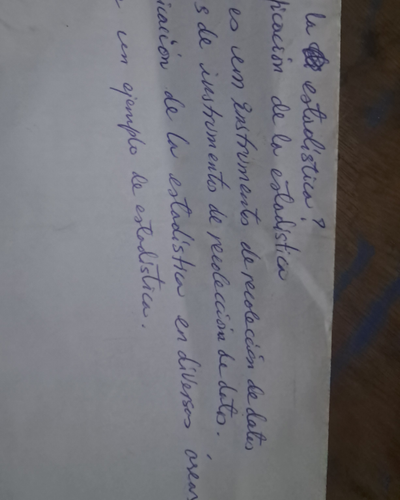 la estadística?
icación de la estadística
es um Instrumento de recolección de datos
s de instrumento de recolección de datos.
icación de la estadística en diversas áreas
un ejemplo de estadística.